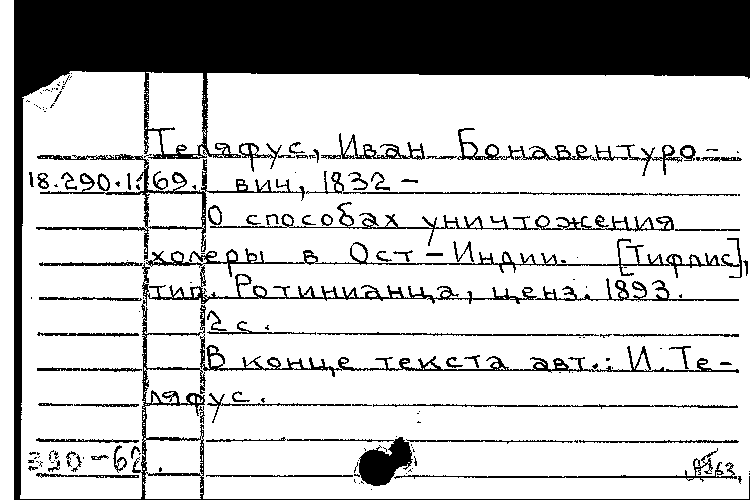 Теляфус, Иван Бонавентуро-
18.290.1.169. вич, 1832 –
О способах уничтожения
холеры в Ост-Индии. [Тифлис],
тип. Ротинианца, ценз. 1893.
2 с.
В конце текста авт.: И. Те-
ляфус.
390-62.
63.